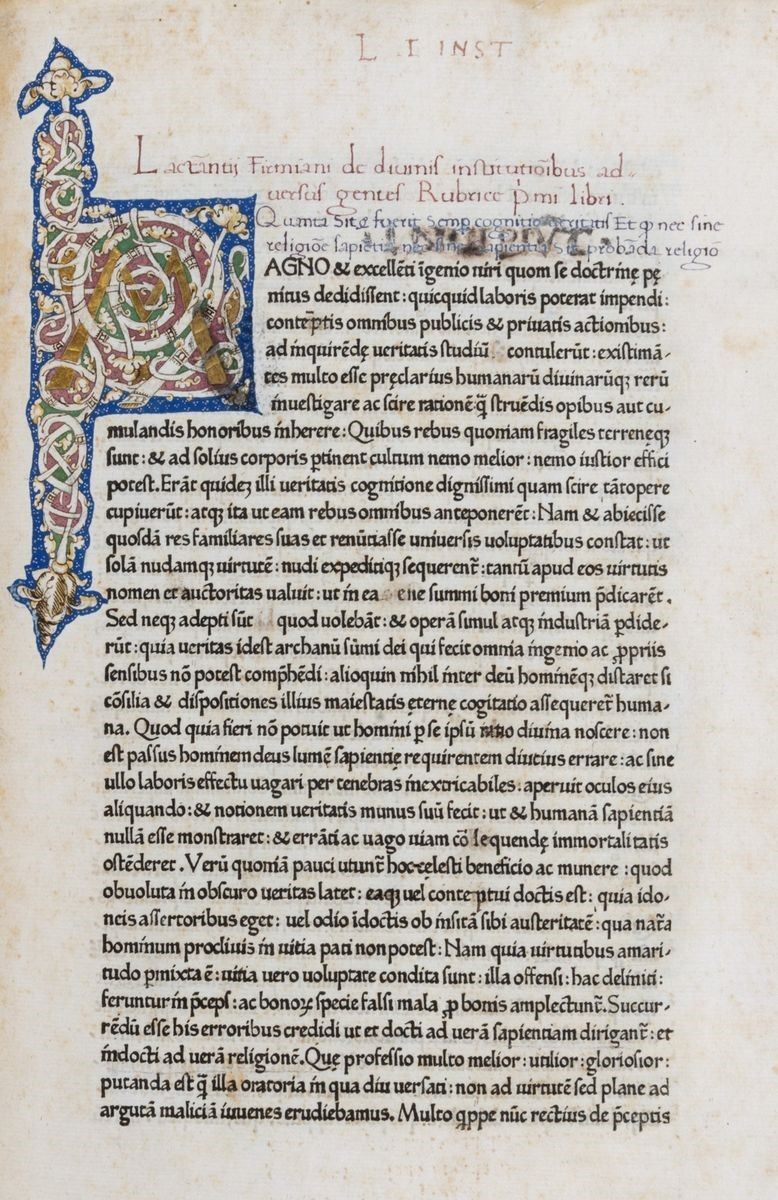 L I INST
Lactātii Firmiani de diuinis institutiōibus ad-
uersus gentes Rubrice p̄mi libri.
Quanta Sit & fuerit Semp cognitio ueritatis Et qꝫ nec sine
religiōe sapiētia nec sine sapientia Sit probāda religiō
MAGNO & excellēti īgenio uiri quom se doctrinę pę
nitus dedidissent: quicquid laboris poterat impendi:
contēptis omnibus publicis & priuatis actionibus:
ad inquirendę ueritatis studiū contulerūt: existimā-
tes multo esse pręclarius humanarū diuinarūqꝫ rerū
inuestigare ac scire rationē q̄ struēdis opibus aut cu-
mulandis honoribus inherere: Quibus rebus quoniam fragiles terreneqꝫ
sunt: & ad solius corporis ꝑtinent cultum nemo melior: nemo iustior effici
potest. Erāt quideꝫ illi ueritatis cognitione dignissimi quam scire tātopere
cupiuerūt: atqꝫ ita ut eam rebus omnibus anteponerēt: Nam & abiecisse
quosdā res familiares suas et renūtiasse uniuersis uoluptatibus constat: ut
solā nudamqꝫ uirtutē: nudi expeditiqꝫ sequerent̄: tantū apud eos uirtutis
nomen et auctoritas ualuit: ut in ea ene summi boni premium p̄dicarēt.
Sed neqꝫ adepti sūt quod uolebāt: & operā simul atqꝫ industriā ꝑdide-
rūt: quia ueritas idest archanū sūmi dei qui fecit omnia ingenio ac ꝓpriis
sensibus nō potest comp̄hēdi: alioquin nihil inter deū hominēqꝫ distaret si
cōsilia & dispositiones illius maiestatis eternę cogitatio assequeret̄ huma-
na. Quod quia fieri nō potuit ut homini ꝑ se ipsū ratio diuina noscere: non
est passus hominem deus lumē sapientię requirentem diutius errare: ac sine
ullo laboris effectu uagari per tenebras inextricabiles. aperuit oculos eius
aliquando: & notionem ueritatis munus suū fecit: ut & humanā sapientiā
nullā esse monstraret: & errāti ac uago uiam cōsequendę immortalitatis
ostēderet. Verū quoniā pauci utunt̄ hoc cęlesti beneficio ac munere: quod
obuoluta in obscuro ueritas latet: eaqꝫ uel conteptui doctis est: quia ido-
neis assertoribus eget: uel odio īdoctis ob insitā sibi austeritatē: qua nat̄a
hominum procliuis in uitia pati non potest: Nam quia uirtutibus amari-
tudo ꝑmixta ē: uitia uero uoluptate condita sunt: illa offensi: hac deliniti:
feruntur in p̄ceps: ac bonoꝝ specie falsi mala ꝓ bonis amplectunt̄. Succur-
rēdū esse his erroribus credidi ut et docti ad uerā sapientiam dirigant̄: et
indocti ad uerā religionē. Quę professio multo melior: utilior: gloriosior:
putanda est q̄ illa oratoria in qua diu uersati: non ad uirtutē sed plane ad
argutā maliciā iuuenes erudiebamus. Multo qppe nūc rectius de p̄ceptis